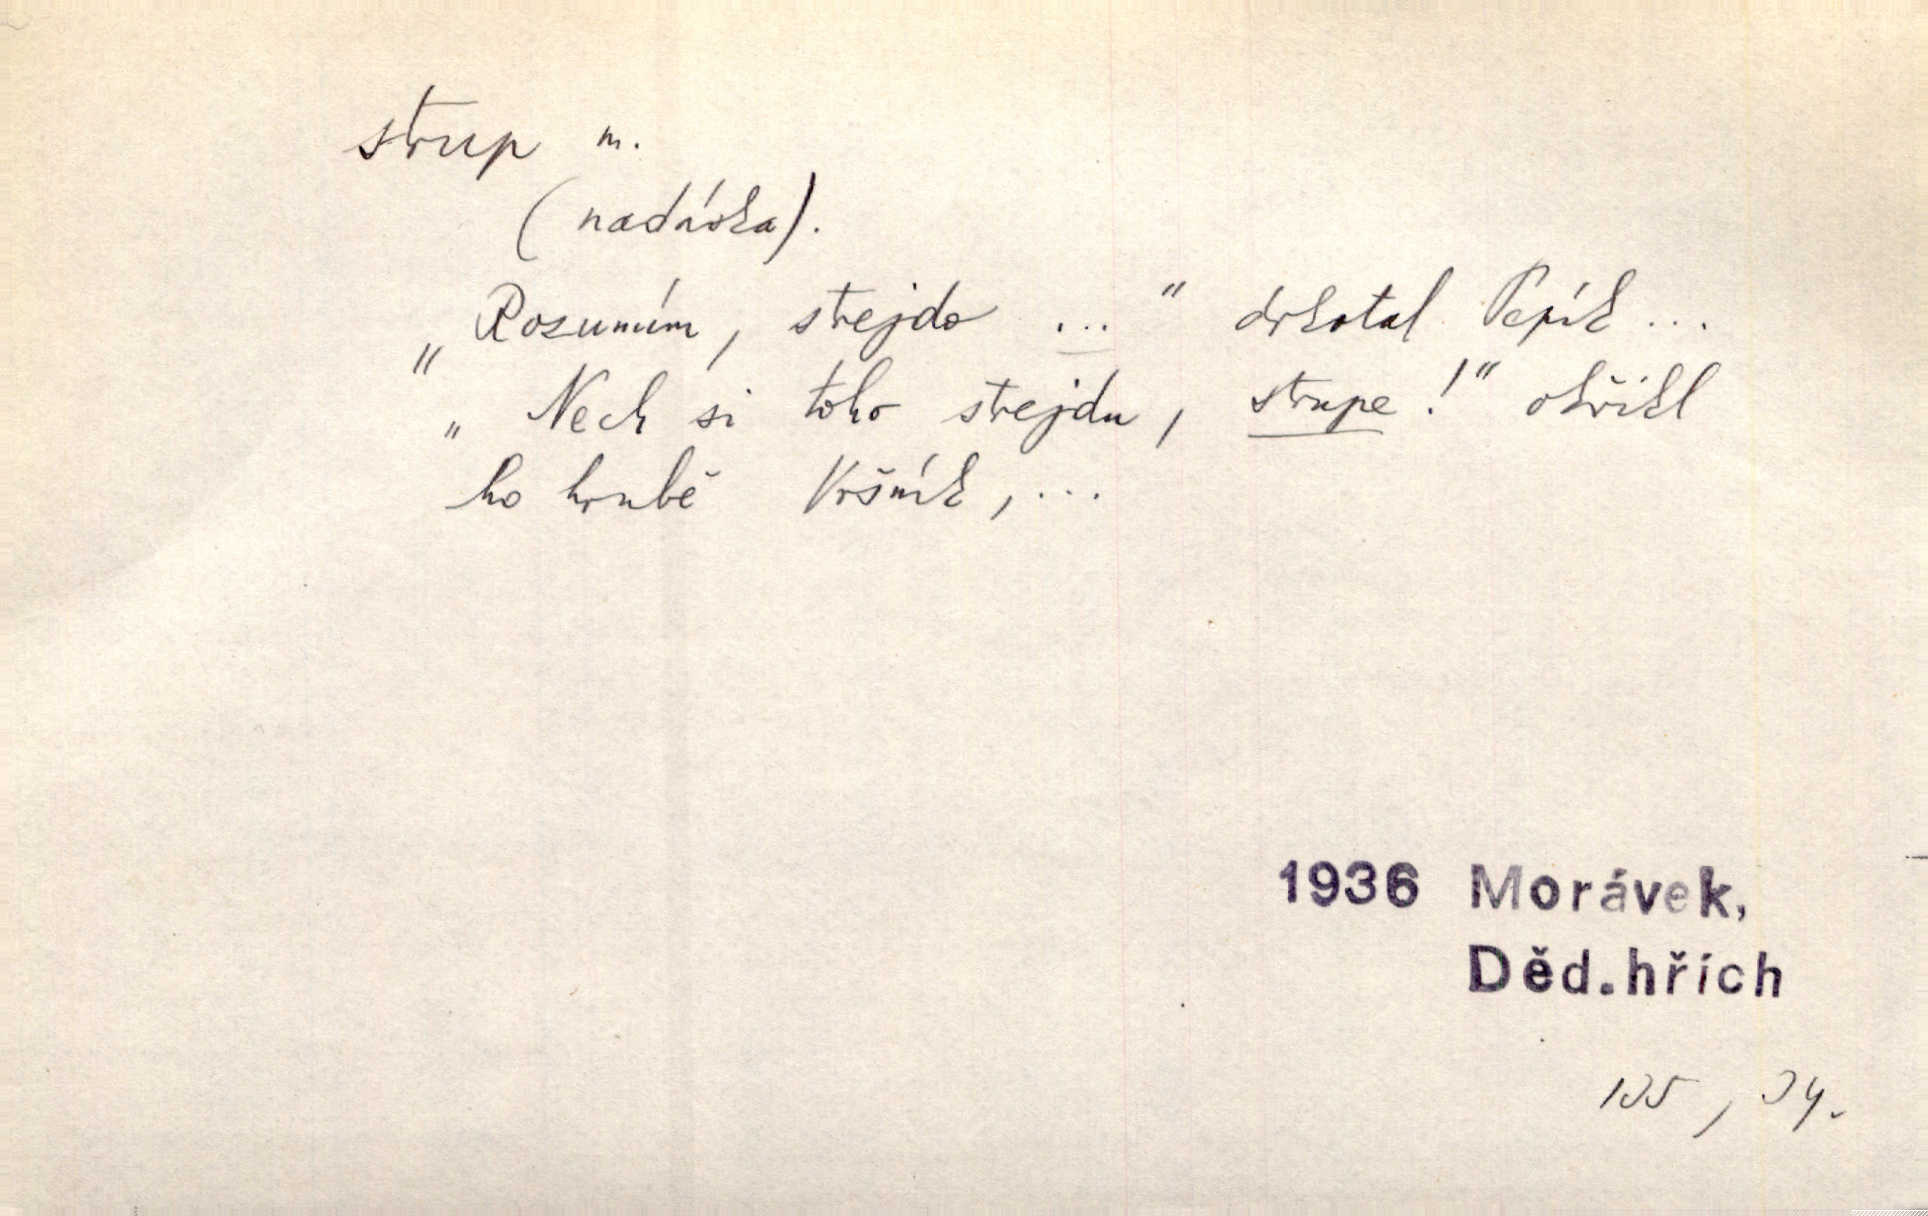 strup m.
(nadávka).
„Rozumím, strejdo ..." drkotal Pepík ...
„Nech si toho strejdu, strupe!" okřikl
ho hrubě Vršník, ...
1936 Morávek,
Děd.hřích